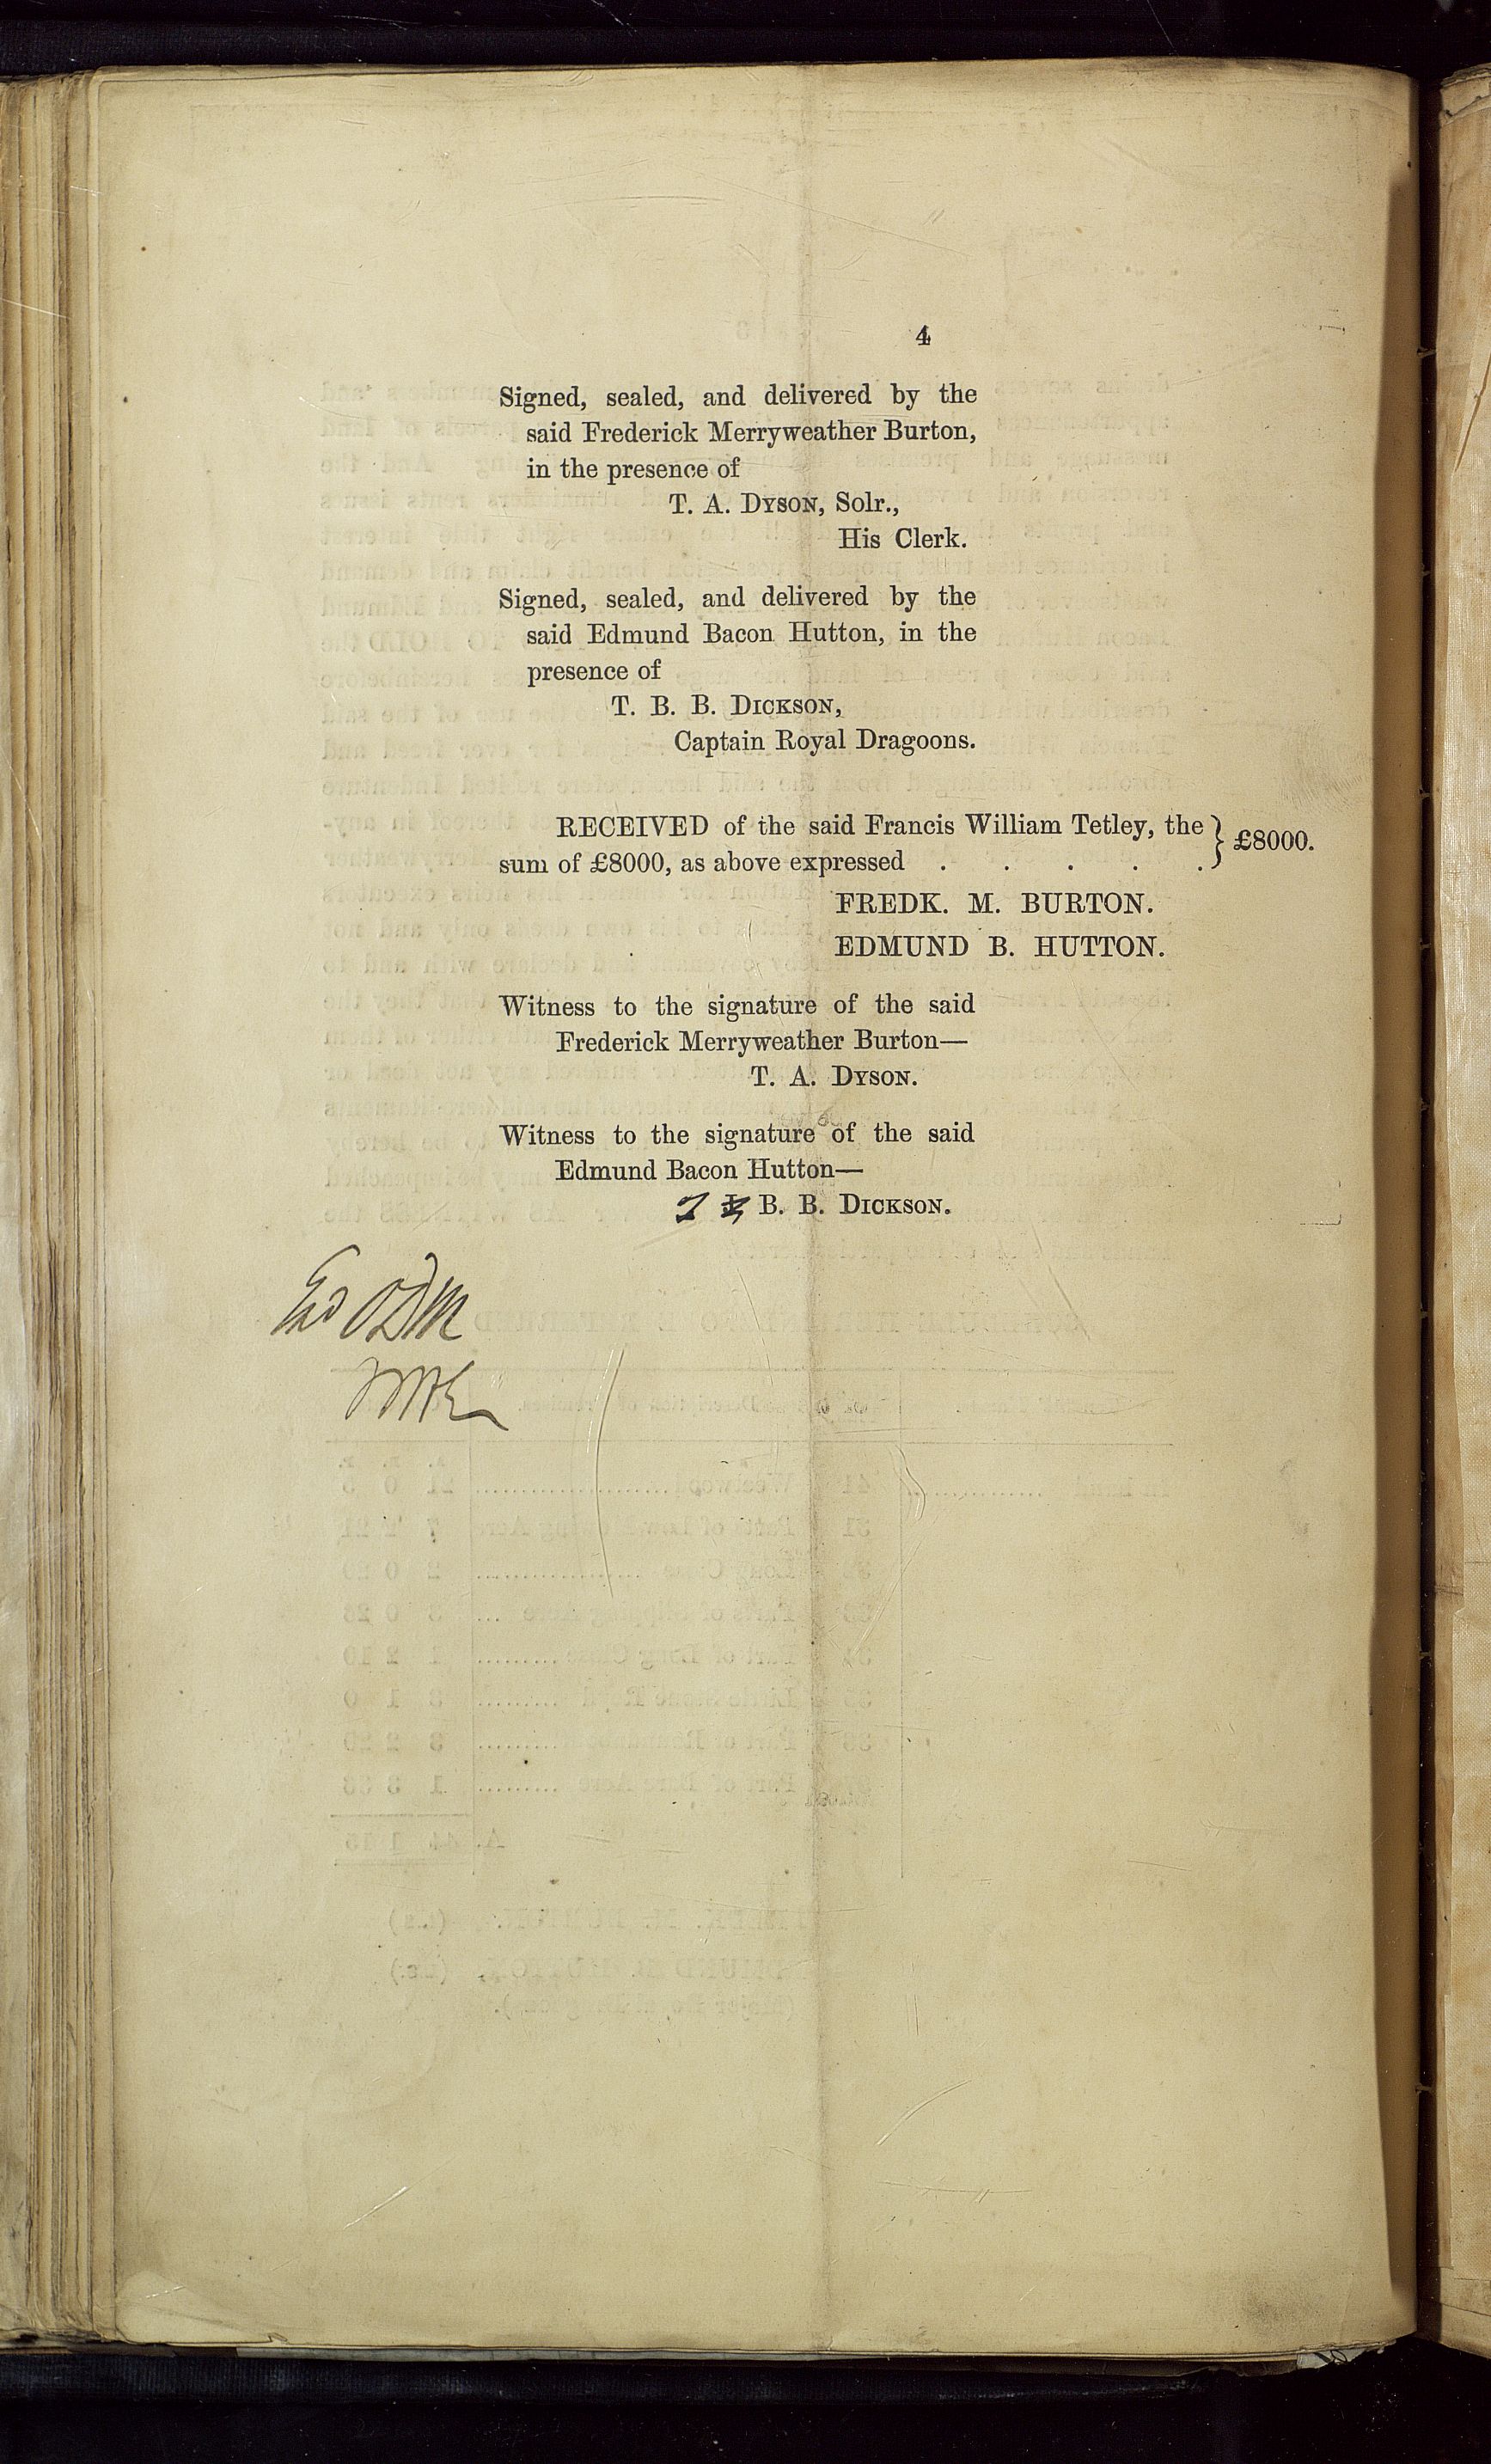 4
Signed, sealed, and delivered by the
said Frederick Merryweather Burton,
in the presence of
T. A. DYSON, Solr.,
His Clerk.
Signed, sealed, and delivered by the
said Edmund Bacon Hutton, in the
presence of
T. B. B. DICKSON,
Captain Royal Dragoons.
RECEIVED of the said Francis William Tetley, the
sum of £8000, as above expressed . . . . . } £8000.
FREDK. M. BURTON.
EDMUND B. HUTTON.
Witness to the signature of the said
Frederick Merryweather Burton—
T. A. DYSON.
Witness to the signature of the said
Edmund Bacon Hutton—
T B. B. DICKSON.